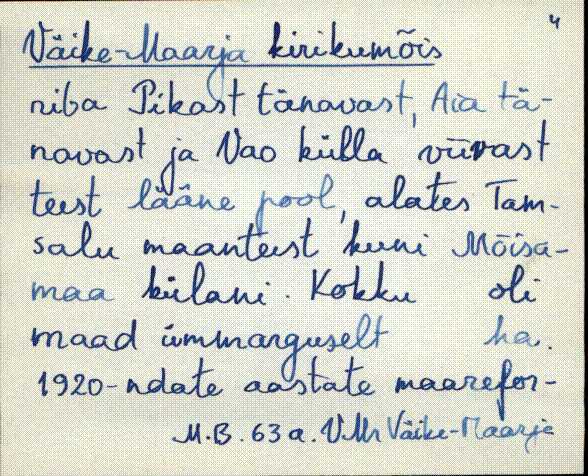 4
Väike-Maarja kirikumõis
riba Pikast tänavast, Aia tä-
navast ja Vao külla viivast
teest lääne pool, alates Tam-
salu maanteest kuni Mõisa-
maa külani. Kokku oli
maad ümmarguselt ha.
1920-ndate aastate maarefor-
M.B. 63 a. VMr Väike-Maarja